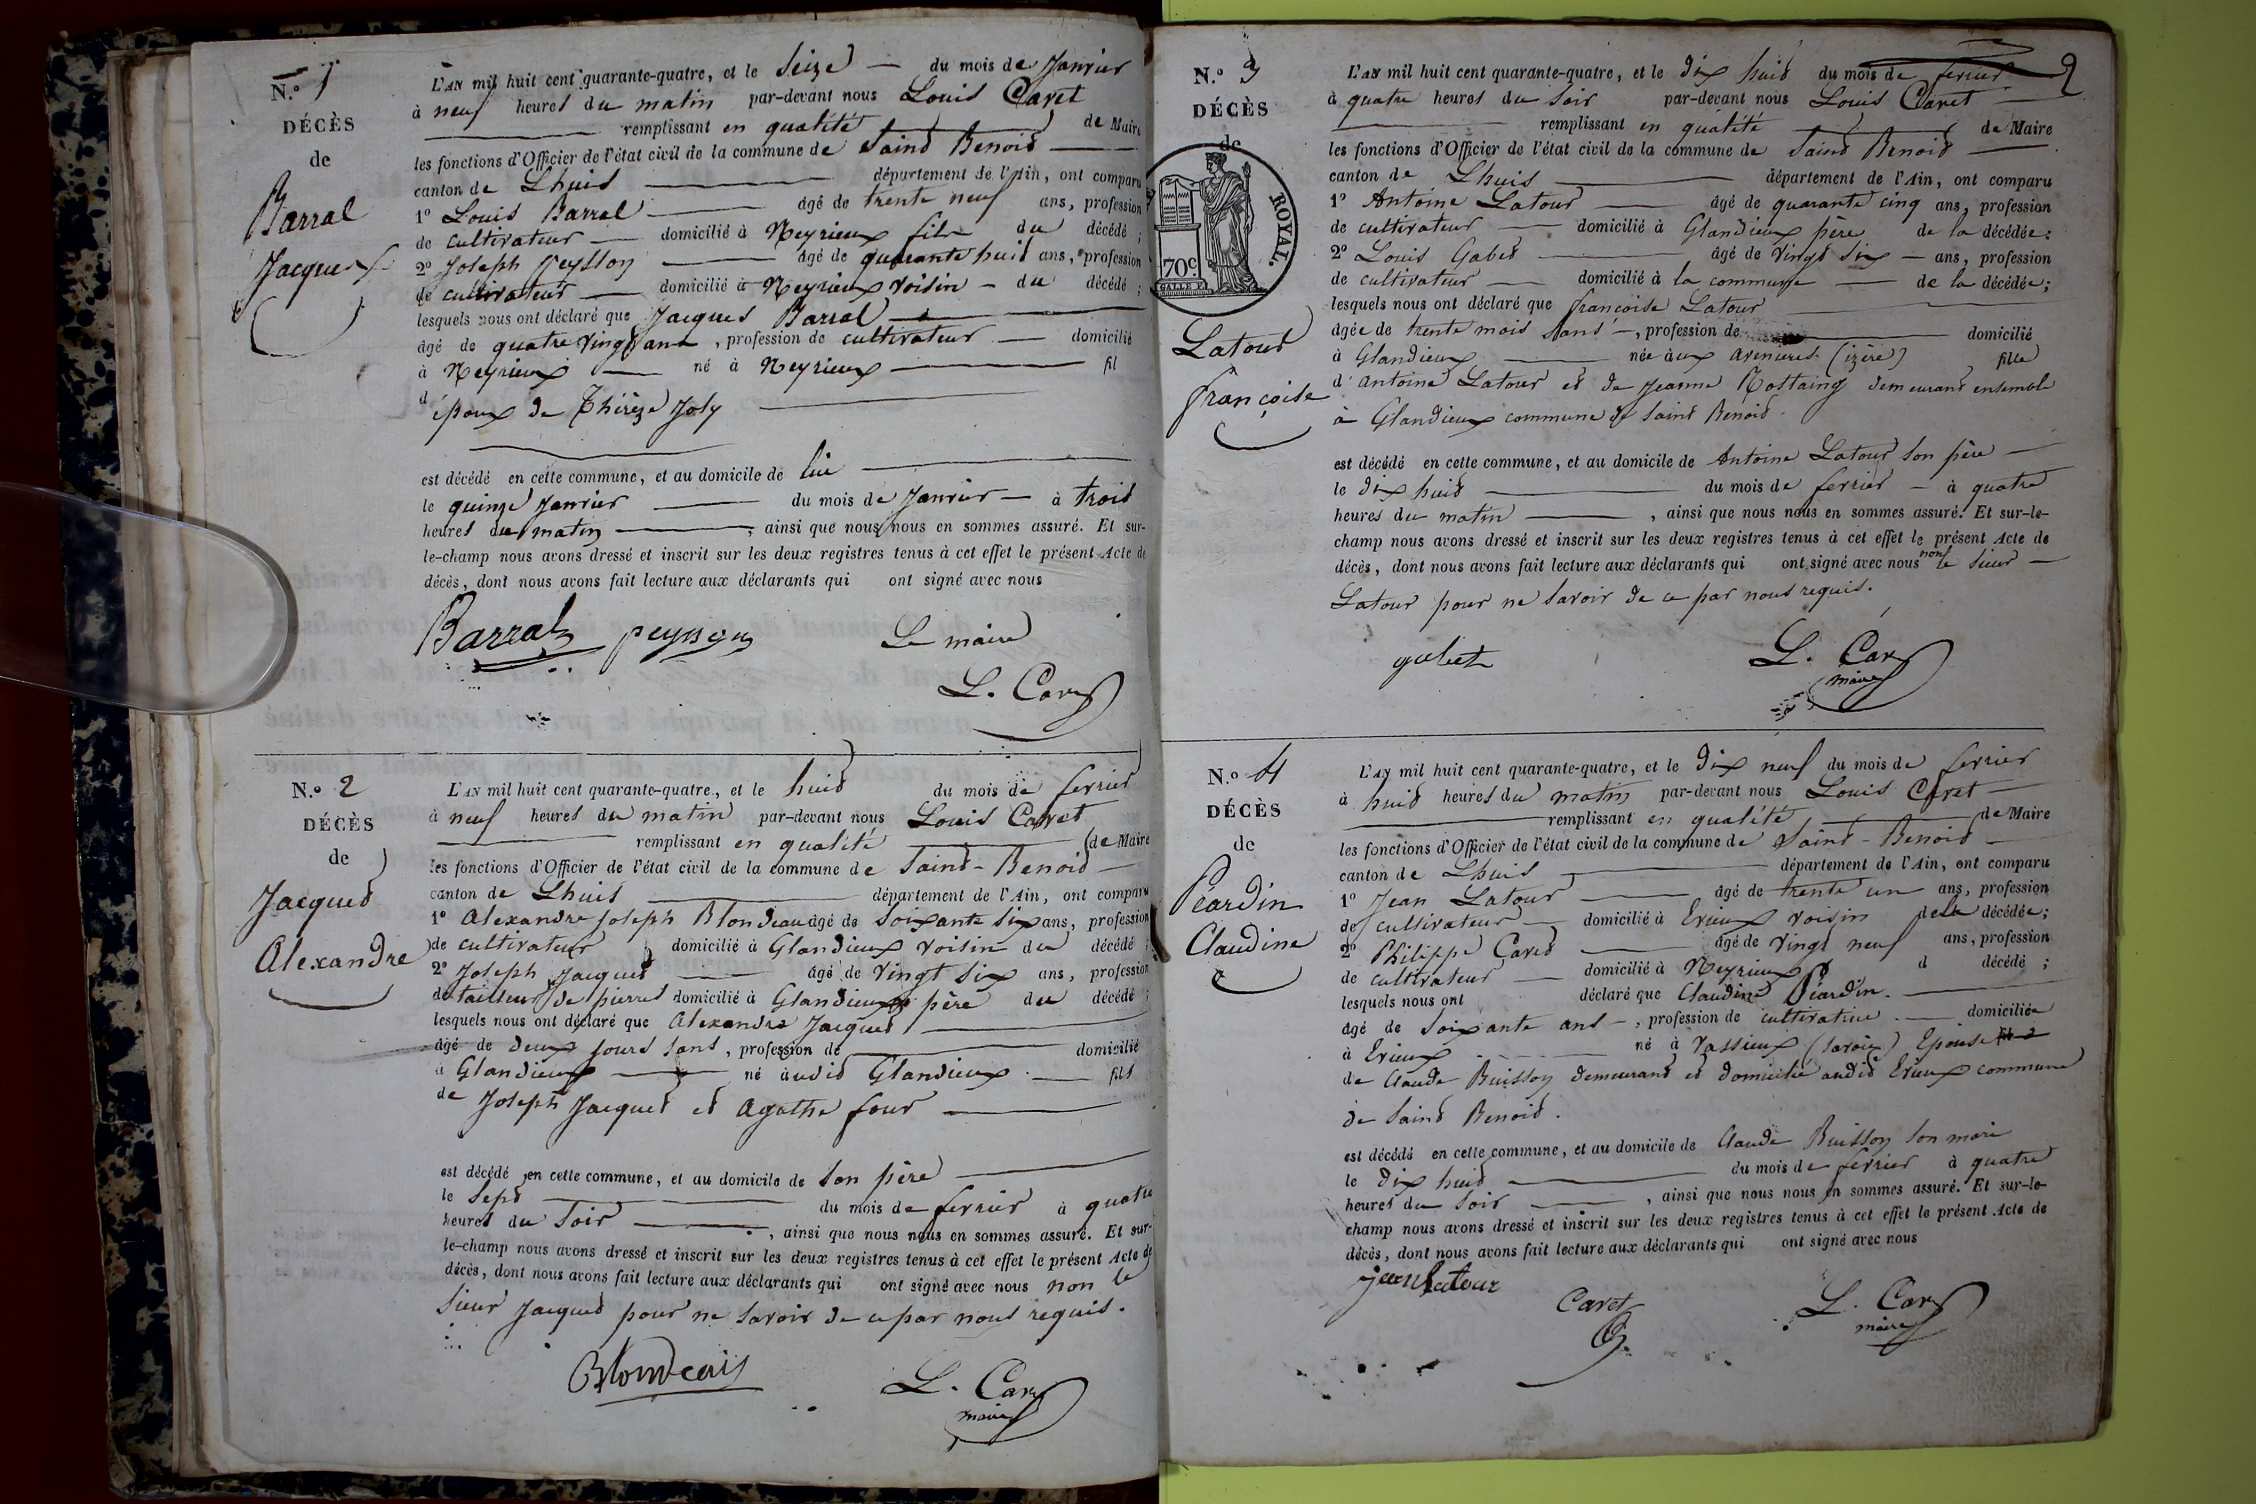 N.º 1
DÉCÈS
de
Barral
Jacques
L'AN mil huit cent quarante-quatre, et le Seize — du mois de Janvier
à neuf heures du matin par-devant nous Louis Cavet
remplissant en qualité de Maire
les fonctions d'Officier de l'état civil de la commune de Saind Benoid
canton de Lhuis département de l'Ain, ont comparu
1º Louis Barral âgé de trente neuf ans, profession
de cultivateur domicilié à Neyrieux fils du décédé ;
2º Joseph Peysson âgé de quarante huit ans, profession
de cultivateur domicilié à Neyrieux voisin du décédé ;
lesquels nous ont déclaré que Jacques Barral
âgé de quatre vingd ans, profession de cultivateur domicilié
à Neyrieux né à Neyrieux fil
d époux de Thérèze Joly
est décédé en cette commune, et au domicile de lui
le quinze Janvier du mois de Janvier à trois
heures du matin, ainsi que nous nous en sommes assuré. Et sur-
le-champ nous avons dressé et inscrit sur les deux registres tenus à cet effet le présent Acte de
décès, dont nous avons fait lecture aux déclarants qui ont signé avec nous
Barral peysson Le maire
L. Cavet
N.º 2
DÉCÈS
de
Jacqued
Alexandre
L'AN mil huit cent quarante-quatre, et le huid du mois de fevrier
à neuf heures du matin par-devant nous Louis Cavet
remplissant en qualité de Maire
les fonctions d'Officier de l'état civil de la commune de Saind-Benoid
canton de Lhuis département de l'Ain, ont comparu
1º Alexandre Joseph Blondeau âgé de Soixante six ans, profession
de cultivateur domicilié à Glandieux voisin du décédé ;
2º Joseph Jacqued âgé de vingt six ans, profession
de tailleur de pierres domicilié à Glandieux père du décédé ;
lesquels nous ont déclaré que Alexandre Jacqued
âgé de deux jours sans, profession de domicilié
à Glandieux né àudid Glandieux fils
de Joseph Jacqued ed Agathe four
est décédé en cette commune, et au domicile de son père
le Sepd du mois de fevrier à quatre
heures du Soir, ainsi que nous nous en sommes assuré. Et sur-
le-champ nous avons dressé et inscrit sur les deux registres tenus à cet effet le présent Acte de
décès, dont nous avons fait lecture aux déclarants qui ont signé avec nous non le
Sieur Jacqued pour ne savoir de ce par nous requis.
L. Cavet
maire
2
N.º 3
DÉCÈS
de
ROYAL.
70c
Latour
françoise
L'AN mil huit cent quarante-quatre, et le dix huid du mois de fevrier
à quatre heures du Soir par-devant nous Louis Cavet
remplissant en qualité de Maire
les fonctions d'Officier de l'état civil de la commune de Saind Benoid
canton de Lhuis département de l'Ain, ont comparu
1º Antoine Latour âgé de quarante cinq ans, profession
de cultivateur domicilié à Glandieux père de la décédée ;
2º Louis Gabet âgé de vingt six ans, profession
de cultivateur domicilié à la commune de la décédée ;
lesquels nous ont déclaré que françoise Latour
âgée de trente mois sans, profession de domicilié
à Glandieux née àux avenieres (izère) fille
d'antoine Latour ed de Jeanne Rostaing demeurant ensemble
à Glandieux commune de Saint Benoid.
est décédé en cette commune, et au domicile de Antoine Latour son père
le dix huid du mois de fevrier à quatre
heures du matin, ainsi que nous nous en sommes assuré. Et sur-le-
champ nous avons dressé et inscrit sur les deux registres tenus à cet effet le présent Acte de
décès, dont nous avons fait lecture aux déclarants qui ont signé avec nous non le Sieur
Latour pour ne savoir de ce par nous requis.
gabet L. Cavet
maire
N.º 4
DÉCÈS
de
Péardin
Claudine
L'AN mil huit cent quarante-quatre, et le dix neuf du mois de fevrier
à huid heures du matin par-devant nous Louis Cavet
remplissant en qualité de Maire
les fonctions d'Officier de l'état civil de la commune de Saint-Benoid
canton de Lhuis département de l'Ain, ont comparu
1º Jean Latour âgé de trente un ans, profession
de cultivateur domicilié à Evieux voisin de la décédée ;
2º Philippe Caved âgé de vingt neuf ans, profession
de cultivateur domicilié à Neyrieux d décédé ;
lesquels nous ont déclaré que Claudine Péardin.
âgé de soixante ans, profession de cultivatrice domiciliée
à Evieux né à vassieux (savoie) Epouse
de Claude Buisson demeurand ed domicilié audid Evieux commune
de Saind Benoid.
est décédé en cette commune, et au domicile de Claude Buisson son mari
le dix huid du mois de fevrier à quatre
heures du Soir, ainsi que nous nous en sommes assuré. Et sur-le-
champ nous avons dressé et inscrit sur les deux registres tenus à cet effet le présent Acte de
décès, dont nous avons fait lecture aux déclarants qui ont signé avec nous
jean latour Cavet L. Cavet
maire